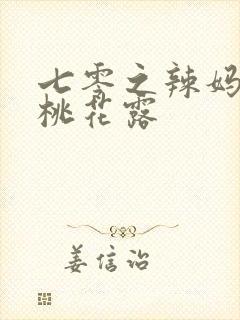 七零之辣妈
桃花露
姜信诒